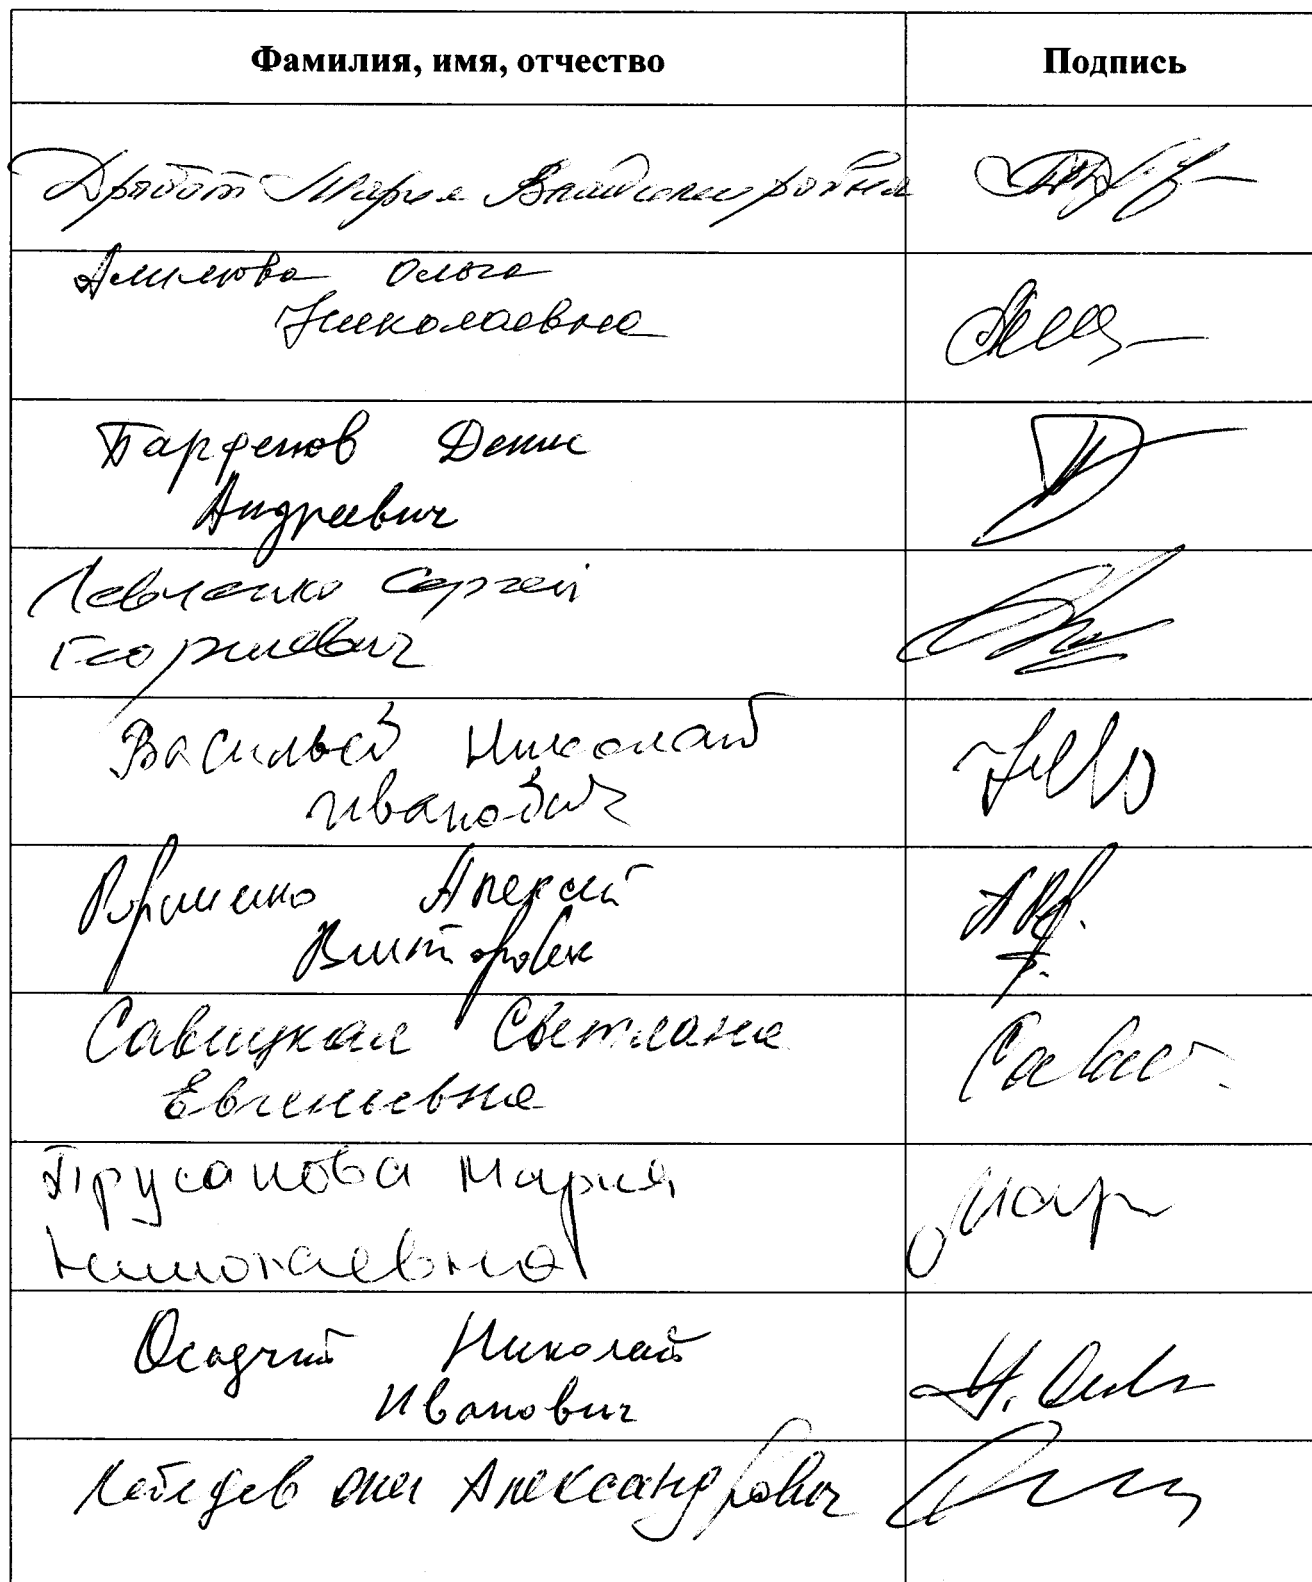 Фамилия, имя, отчество Подпись
Дработ Мария Владимировна
Ольга
Николаевна
Парфенов Денис
Андреевич
Левченко Сергей
Георгиевич
Васильев Николай
Иванович
Алексей
Викторович
Савицкая Светлана
Евгеньевна
Прусакова Мария
Николаевна
Осадчий Николай
Иванович
Александрович